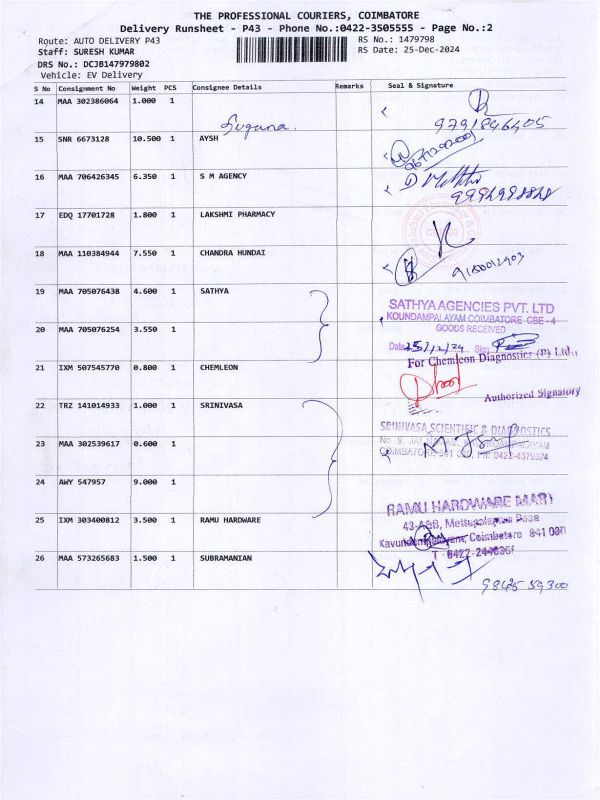 THE PROFESSIONAL COURIERS, COIMBATORE
Delivery Runsheet - P43 - Phone No.:0422-3505555 - Page No.:2
Route: AUTO DELIVERY P43 RS No.: 1479798
Staff: SURESH KUMAR RS Date: 25-Dec-2024
DRS No.: DCJB147979802
Vehicle: EV Delivery
S No Consignment No Weight PCS Consignee Details Remarks Seal & Signature
14 MAA 302386064 1.000 1
Suguna. 9791846405
15 SNR 6673128 10.500 1 AYSH
16 MAA 706426345 6.350 1 S M AGENCY
17 EDQ 17701728 1.800 1 LAKSHMI PHARMACY
18 MAA 110384944 7.550 1 CHANDRA HUNDAI
19 MAA 705076438 4.600 1 SATHYA
SATHYA AGENCIES PVT. LTD
KOUNDAMPALAYAM COIMBATORE-CBE - 4
20 MAA 705076254 3.550 1 GOODS RECEIVED
Date 25/12/24 Sign
For Chemleon Diagnostics (P) Ltd.,
21 IXM 507545770 0.800 1 CHEMLEON
Authorized Signatory
22 TRZ 141014933 1.000 1 SRINIVASA
SRINIVASA SCIENTIFIC & DIAGNOSTICS
23 MAA 302539617 0.600 1
24 AWY 547957 9.000 1
RAMU HARDWARE MART
25 IXM 303400812 3.500 1 RAMU HARDWARE
26 MAA 573265683 1.500 1 SUBRAMANIAN
98425 59300